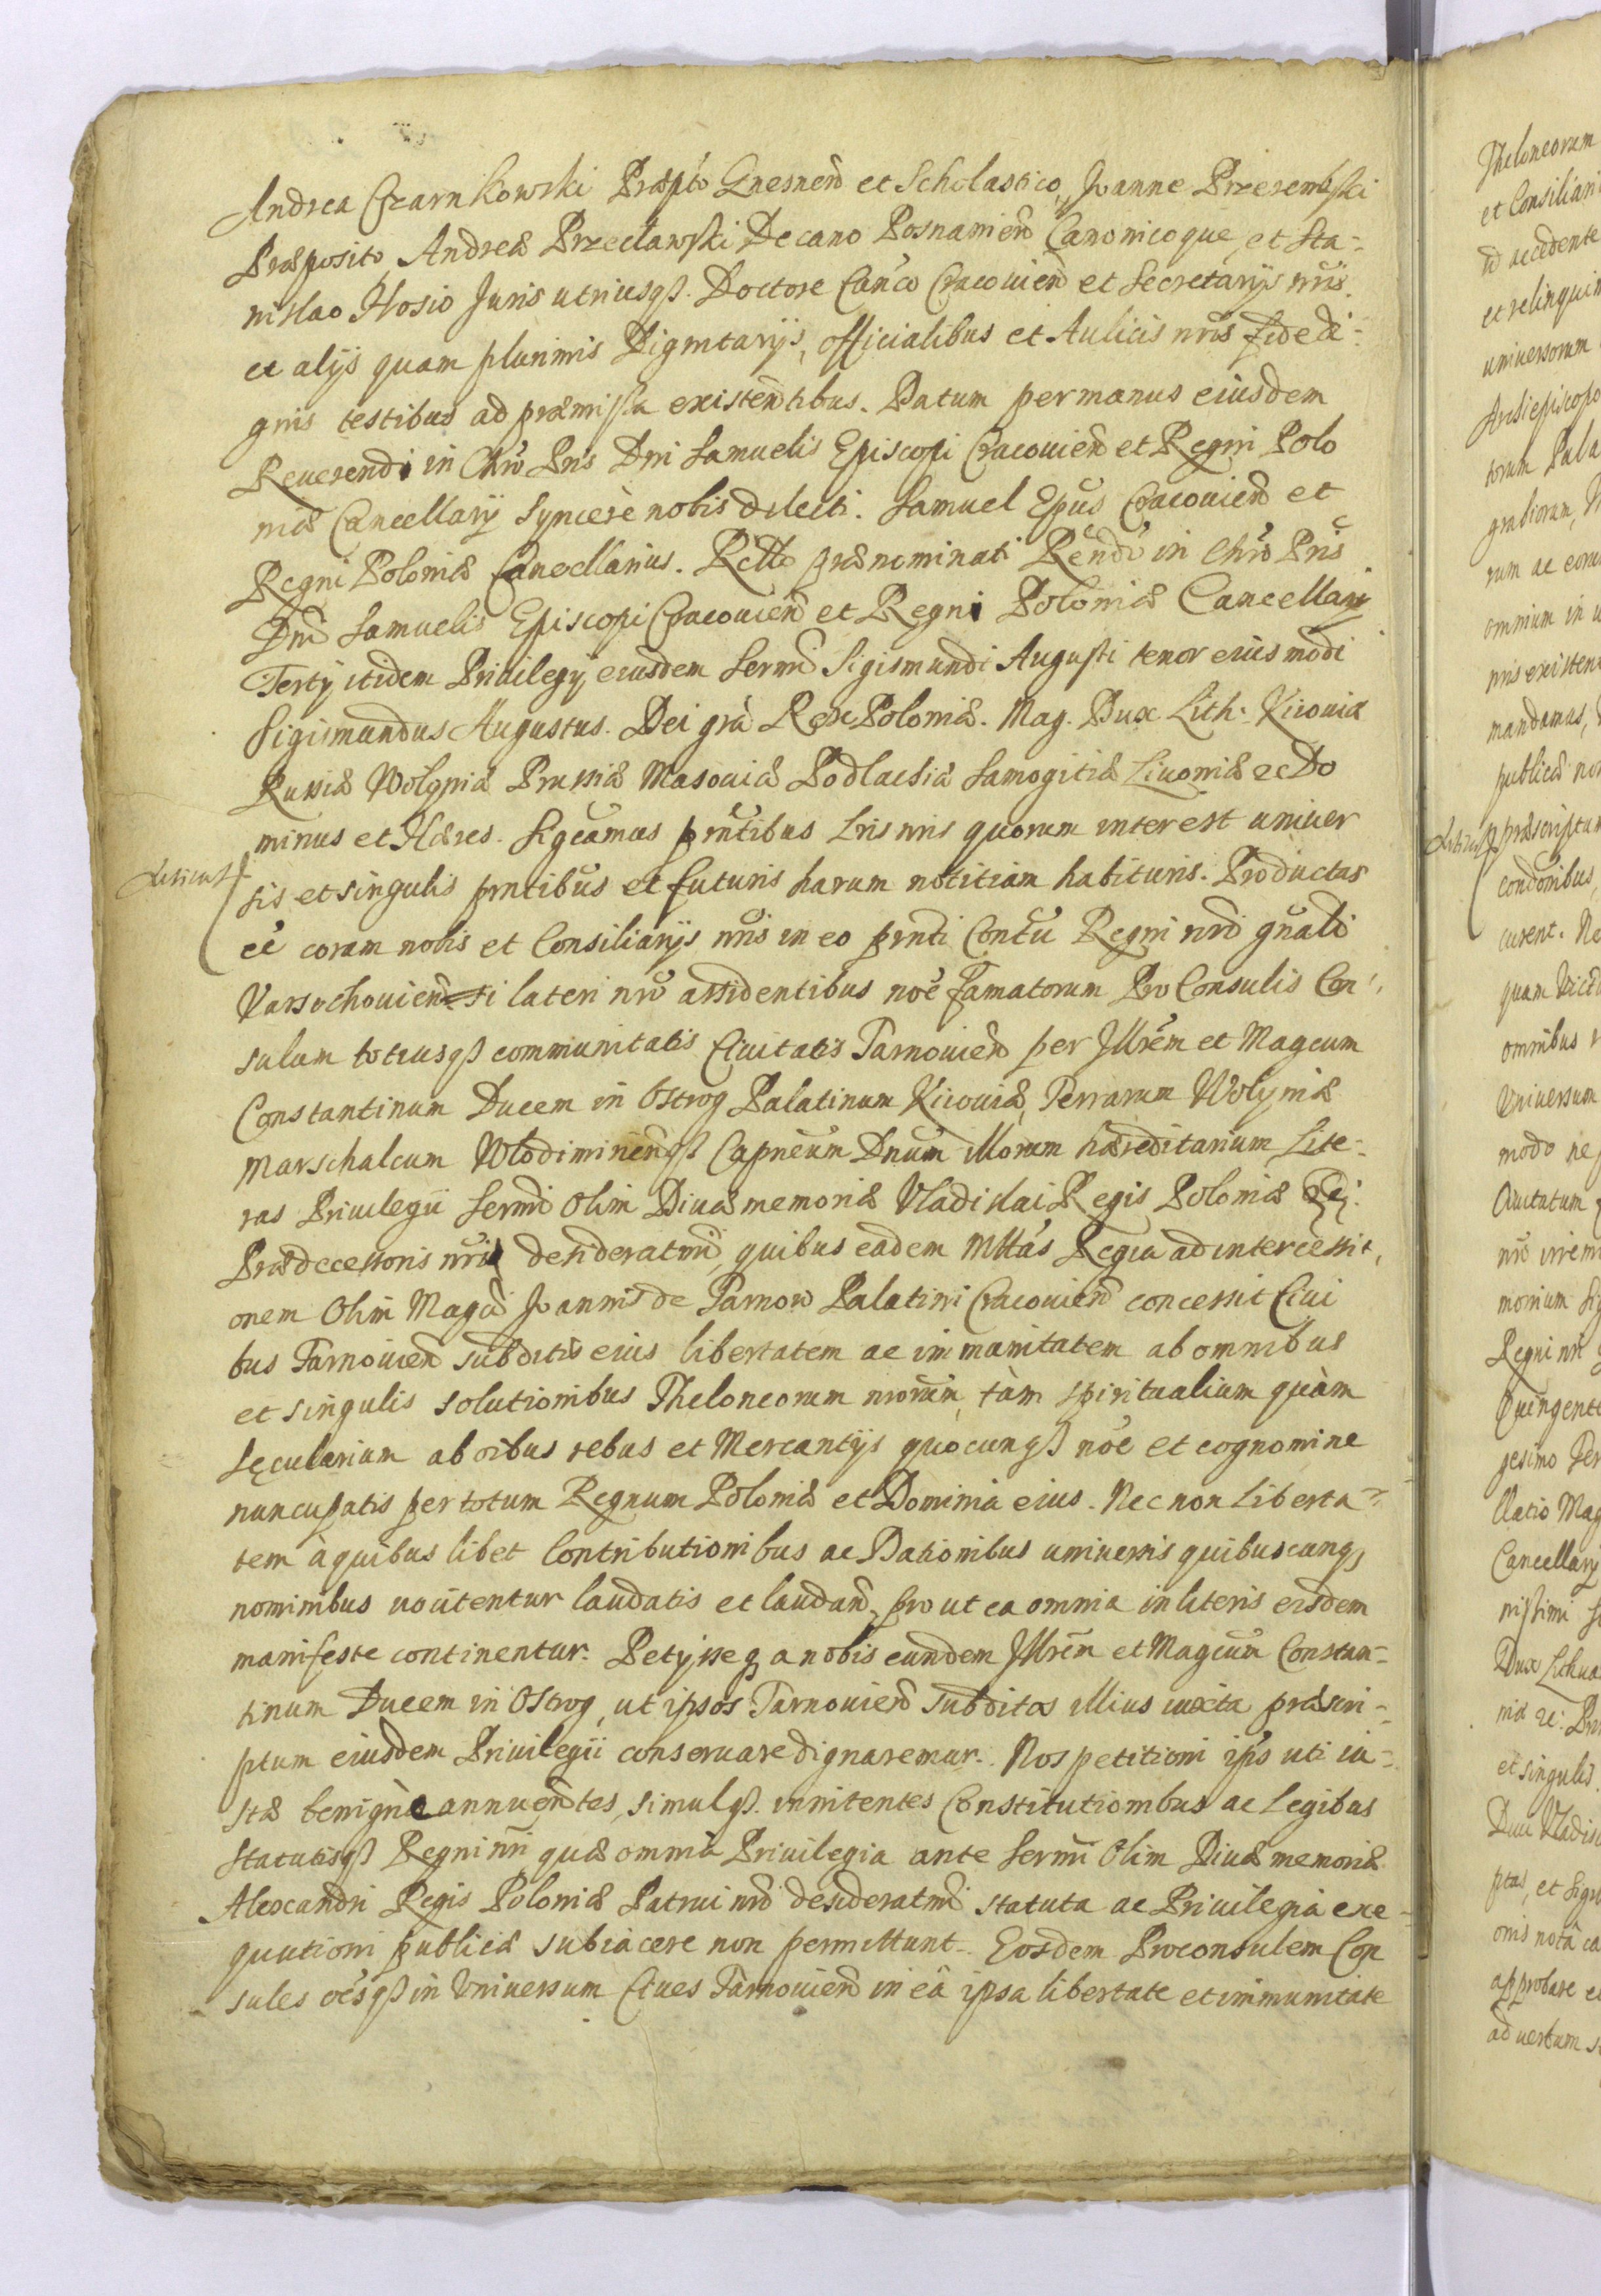 Andrea Czarnkowski Præpto Gnesneñ et Scholastico, Joanne Przerembski
Præposito, Andreæ Przecławski Decano Posnanieñ Canonicoque, et Sta-
nislao Hosio Juris utriusqß. Doctore Canco Cracovieñ et Secretarijs nris.
et alijs quam plurimis Dignitarijs, officialibus et Aulicis nris fide di-
gnis testibus ad præmissa existentibus. Datum per manus eiusdem
Reverendi in Chro Pris Dni Samuelis Episcopi Cracovieñ et Regni Polo
niæ Cancellarij Syncerè nobis dilecti. Samuel Epus Cracovieñ et
Regni Poloniæ Cancellarius. Rlto prænominati Rendi in Chro Pris
Dni Samuelis Episcopi Cracovieñ et Regni Poloniæ Cancellarij
Tertij itidem Privilegij eiusdem Sermi Sigismundi Augusti tenor eius modi
Sigismundus Augustus. Dei gra Rex Poloniæ. Mag. Dux Lith. Kiioviæ
Russiæ Wolyniæ Prussiæ Masoviæ Podlachiæ Samogitiæ Livoniæ ec Do
minus et Hæres. Sigcamus pntibus Lris nris quorum interest univer
sis et singulis pntibus et futuris harum notitiam habituris. Productas
eé coram nobis et Consiliarijs nris in eo pnti Contu Regni nri gnali
Varschovieñ lateri nro assidentibus noe Famatorum Pro Consulis Con-
sulum totiusqß communitatis Civitatis Tarnovieñ per Jllrem et Magcum
Constantinum Ducem in Ostrog Palatinum Kiioviæ, Terrarum Wolyniæ
Marschalcum Wlodimirieñqß Capneum Dnum illorum hæreditarium Lite-
ras Privilegii Sermi Olim Divæ memoriæ Vladislai Regis Poloniæ
Prædecessoris nri desideratmi, quibus eadem Mttas Regia ad intercessi-
onem Olim Magci Joannis de Tarnow Palatini Cracovieñ concessit Civi
bus Tarnovieñ subditis eius libertatem ac immunitatem ab omnibus
et singulis solutionibus Theloneorum nrorum, tàm spiritualium quàm
sęcularium ab oibus rebus et Mercantijs quocunqß noe et cognomine
nuncupatis per totum Regnum Poloniæ et Dominia eius. Nec non Liberta-
tem à quibus libet Contributionibus ac Dationibus universis quibuscunq
nominibus vocitentur laudatis et laudañ, pro ut ea omnia in literis eisdem
manifeste continentur. Petijsseq a nobis eundem Jllrem et Magcum Constan-
tinum Ducem in Ostrog, ut ipsos Tarnovieñ subditos illius iuxta præscri-
ptum eiusdem Privilegii conservare dignaremur. Nos petitioni ips uti iu-
stæ benignè annuentes, simulqß. innitentes Constitutionibus ac Legibus
Statutisqß Regni nri quæ omnia Privilegia ante Sermi Olim Divæ memoriæ
Alexandri Regis Poloniæ Patrui nri desideratmi statuta ac Privilegia exe-
quutioni publicæ subiacere non permittunt. Eosdem Proconsulem Con
sules oesqß in Vniversum Cives Tarnovieñ in eâ ipsa libertate et immunitate
Theloneorum
et Consiliari
id accedente
et relinqui
universorum
Archiepiscopo
torum Pala
grabiorum,
rum ac eoru
omnium in
nris existen
mandamus,
publicæ non
præscriptum
condonibus,
curent. Ne
quam Victu
omnibus
Vniversum
modo ne
Civitatum
nro
monium Si
Regni nri
Quingente
gesimo Ter
llatio Mag
Cancellarij
nissimi
Dux Lithua
niæ ec: Pr
et singulis
Dnu Vladis
ptas, et Sigil
onis notâ ca
approbare
ad vertum